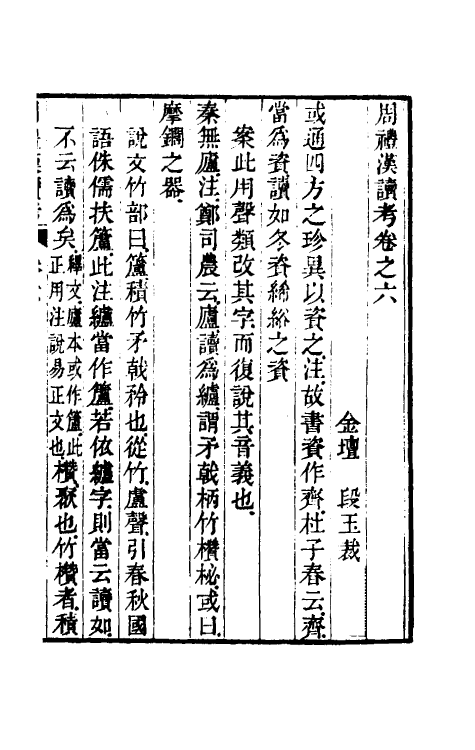 周禮漢讀考卷之六
金壇　段玉裁
或通四方之珍異以資之注故書資作齊杜子春云齊
當爲資讀如冬資絺綌之資
案此用聲類改其字而復說其音義也
秦無廬注鄭司農云廬讀爲纑謂矛戟柄竹欑柲或曰
摩鐧之器
說文竹部曰籚積竹矛戟矜也從竹盧聲引春秋國
語侏儒扶籚此注纑當作籚若依纑字則當云讀如
不云讀爲矣釋文廬本或作籚此正用注說易正文也欑聚也竹欑者積